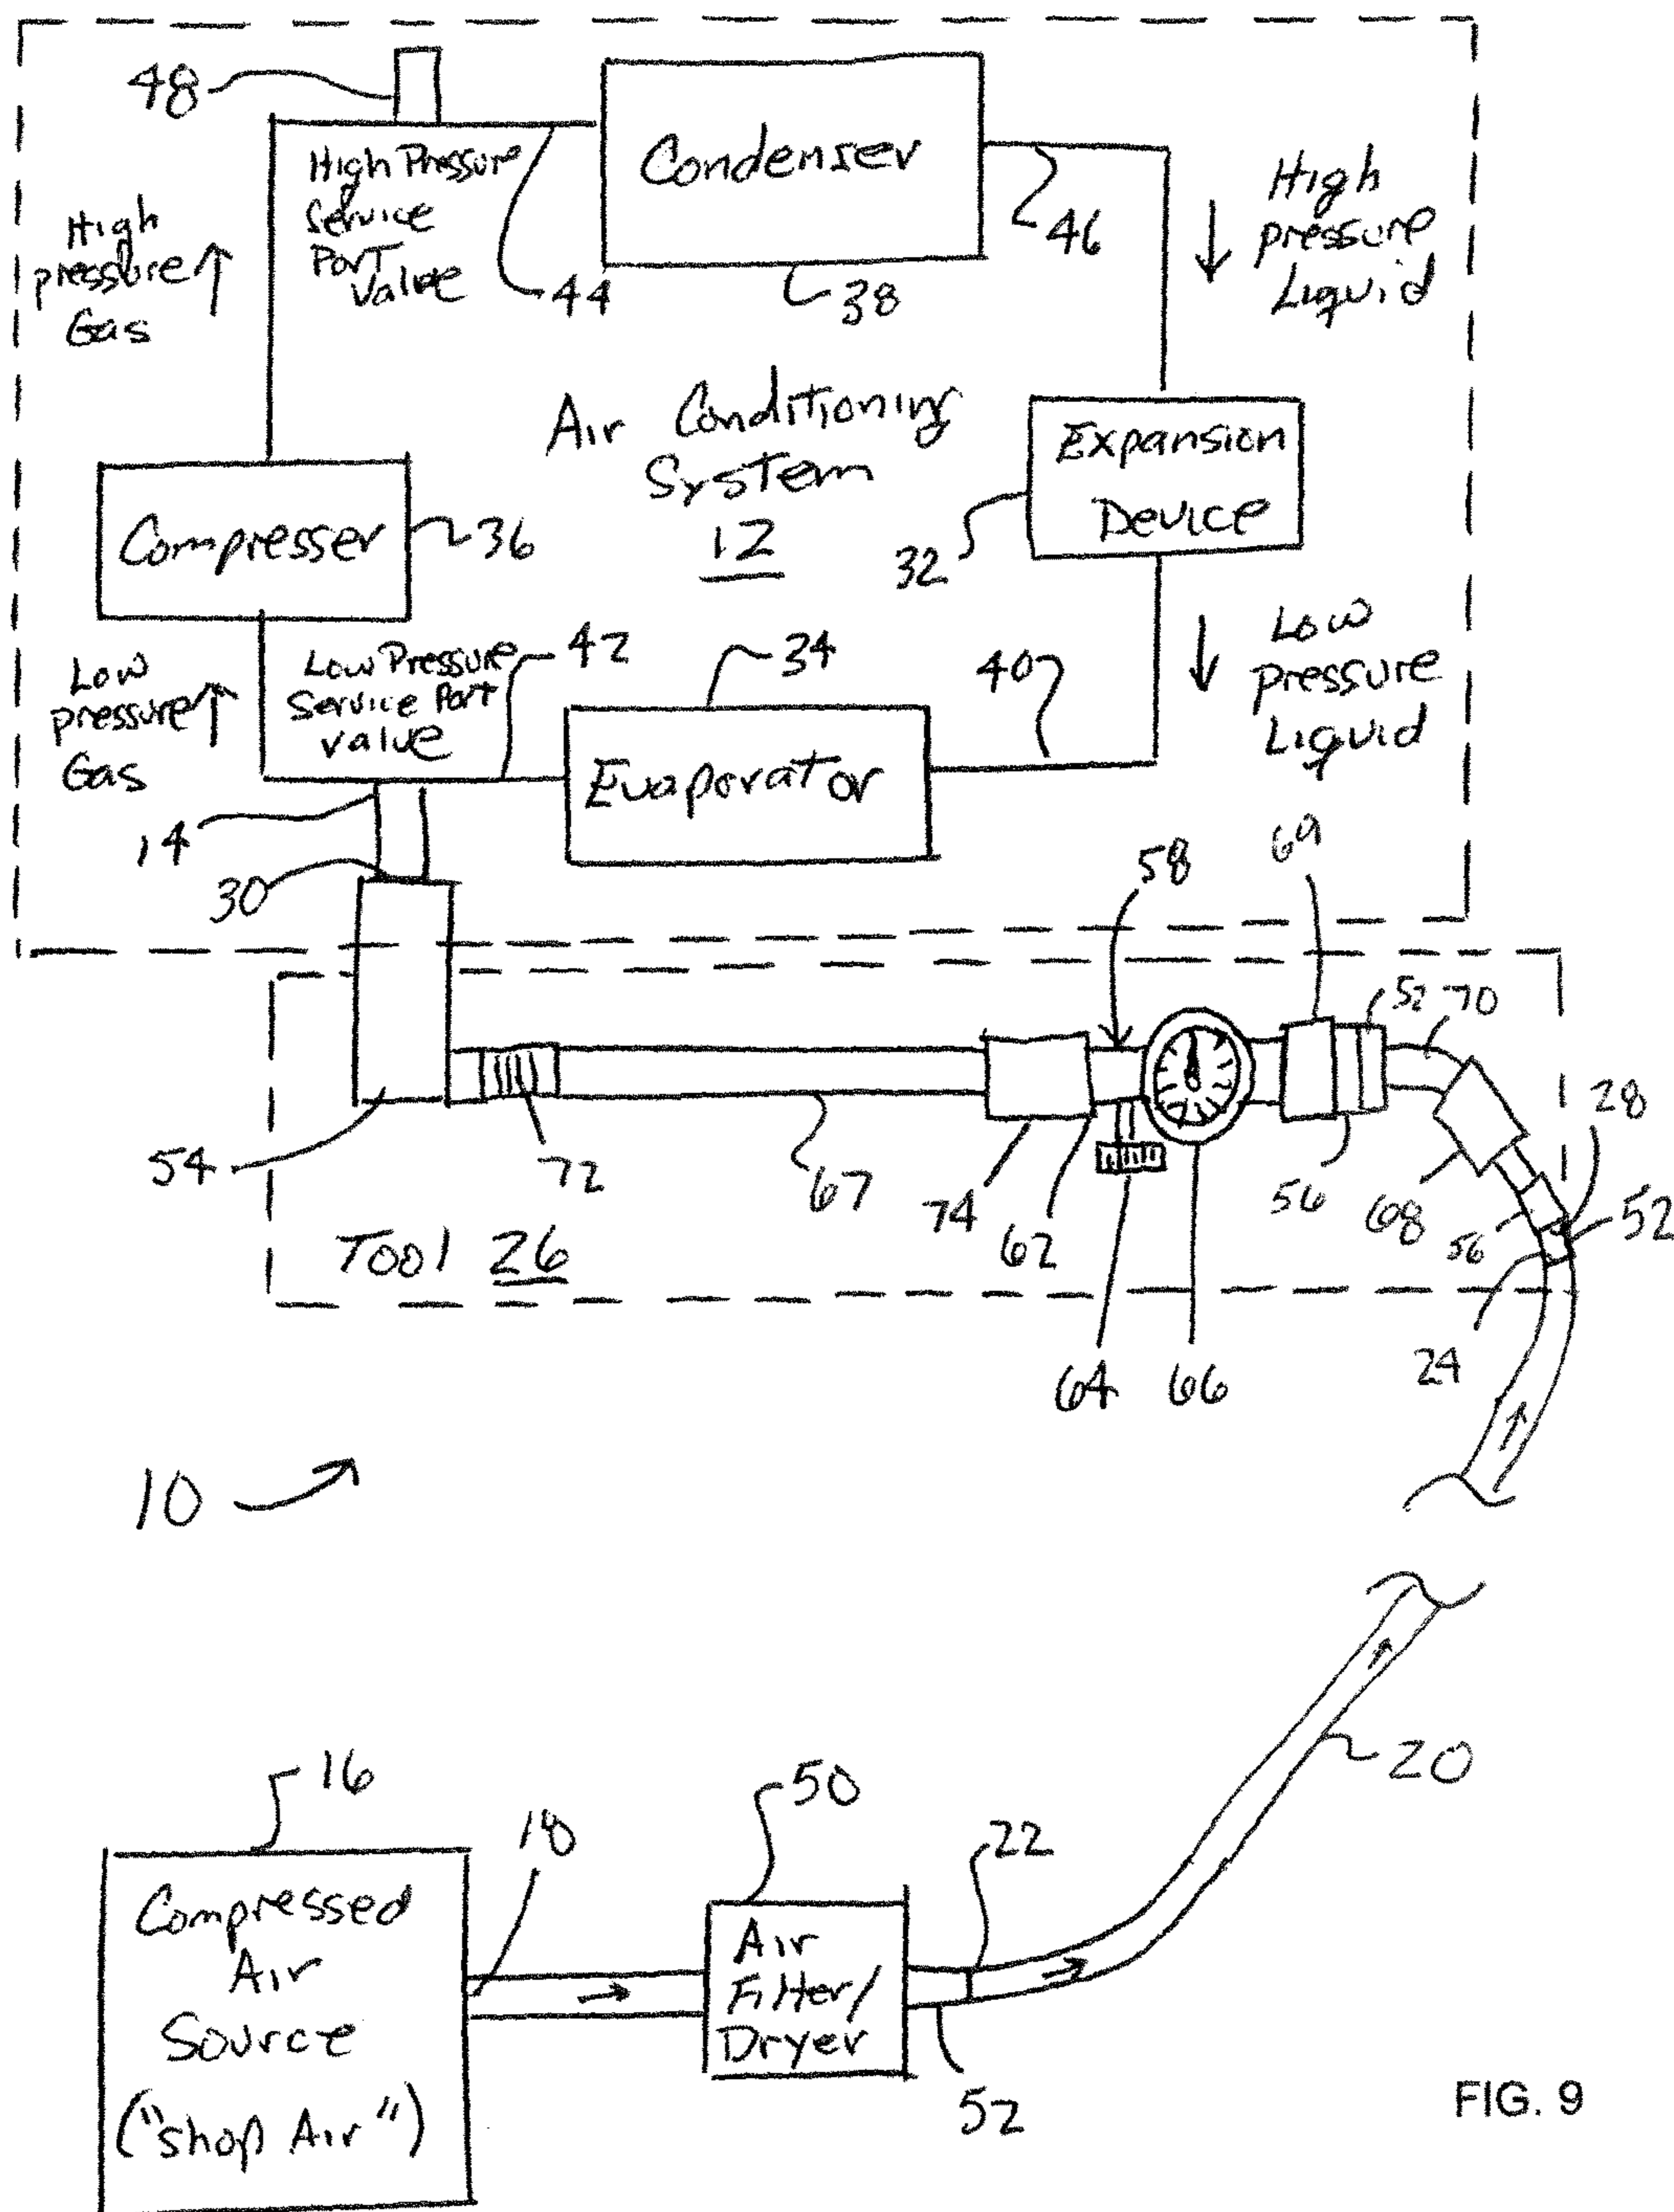 48
High Pressure
Service
Port
Valve
Condenser
High
pressure
Gas
44
38
46
High
pressure
Liquid
Air Conditioning
System
12
Expansion
Device
32
Compresser
36
Low
pressure
Gas
Low Pressure
Service Port
valve
42
34
40
Low
pressure
Liquid
Evaporator
14
30
58
69
52
70
28
54
72
67
74
62
56
68
56
52
Tool 26
64
66
24
10
20
16
50
18
22
Compressed
Air
Source
("shop Air")
Air
Filter/
Dryer
52
FIG. 9